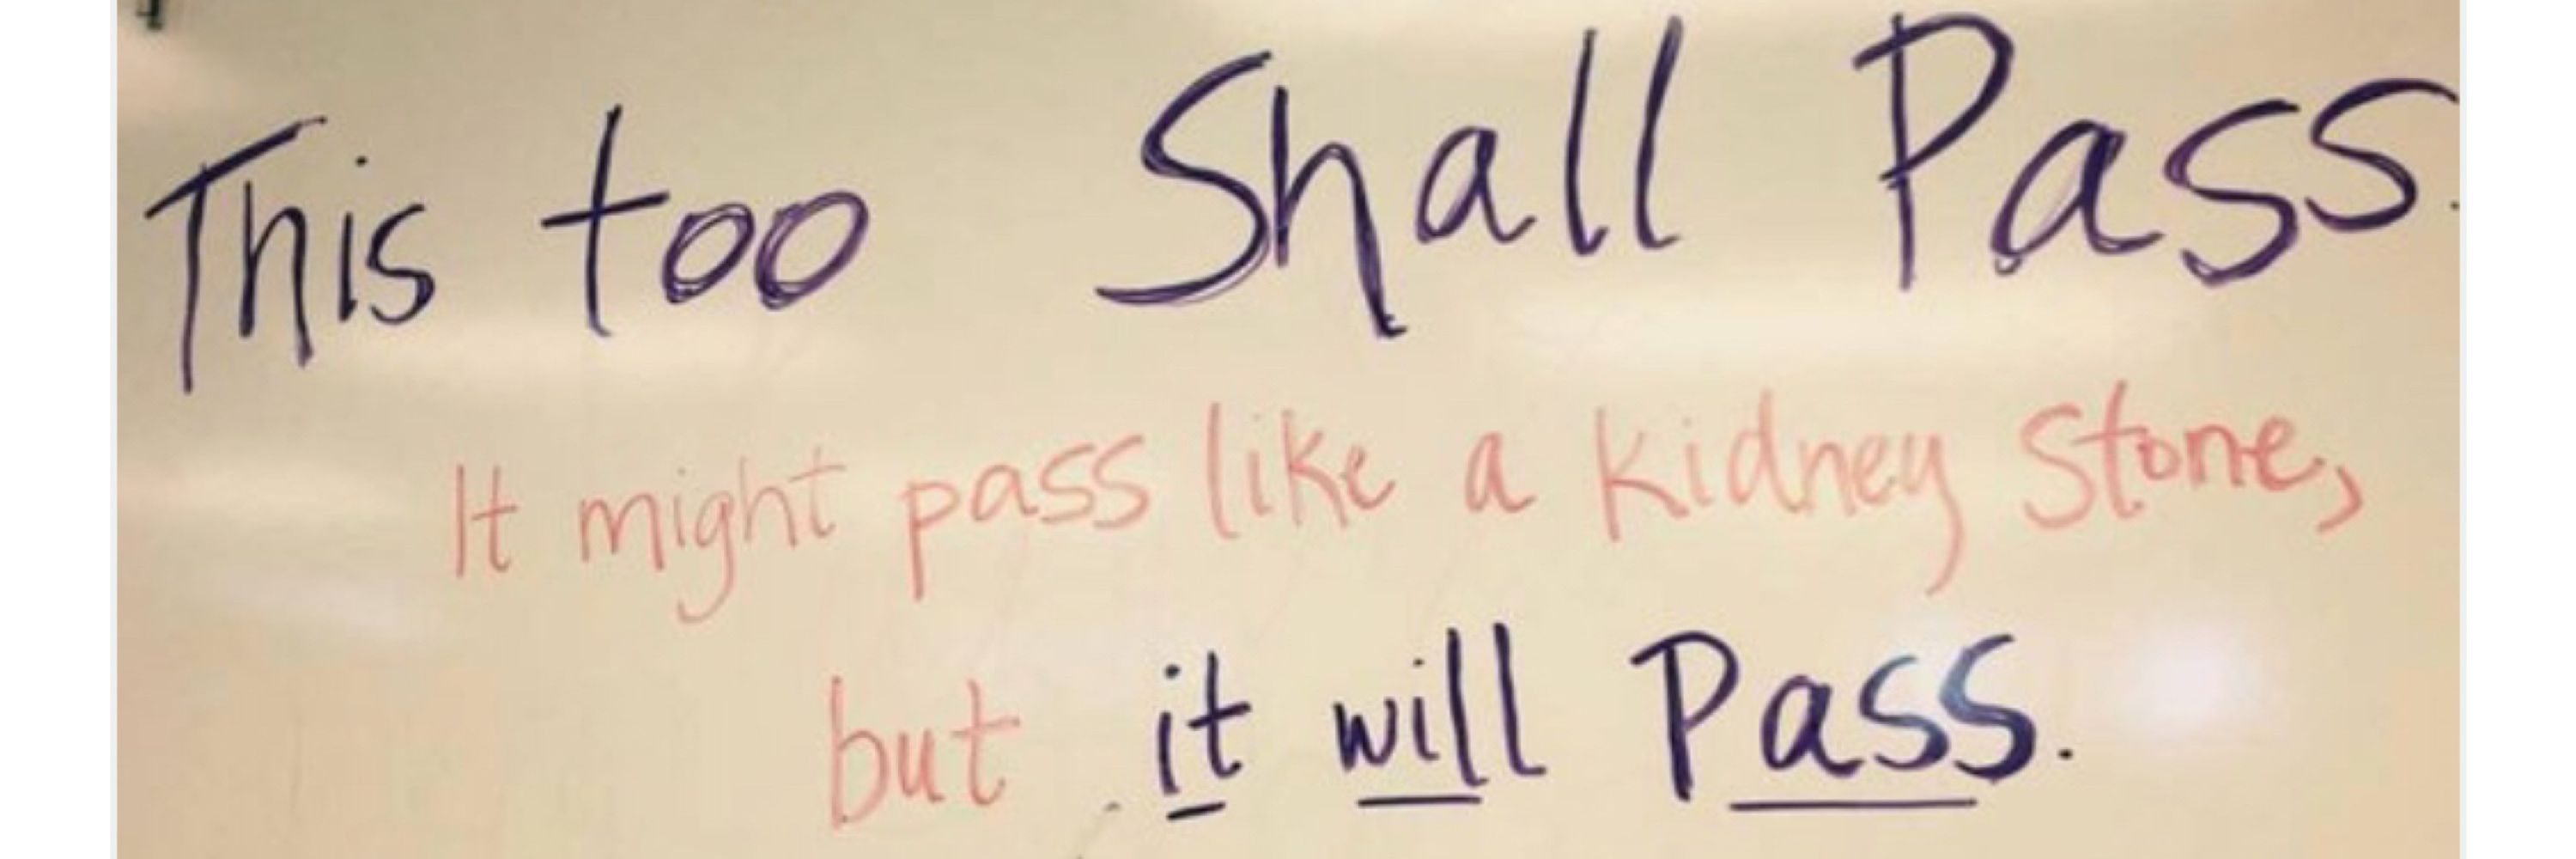 This too Shall Pass.
It might pass like a kidney stone,
but it will Pass.